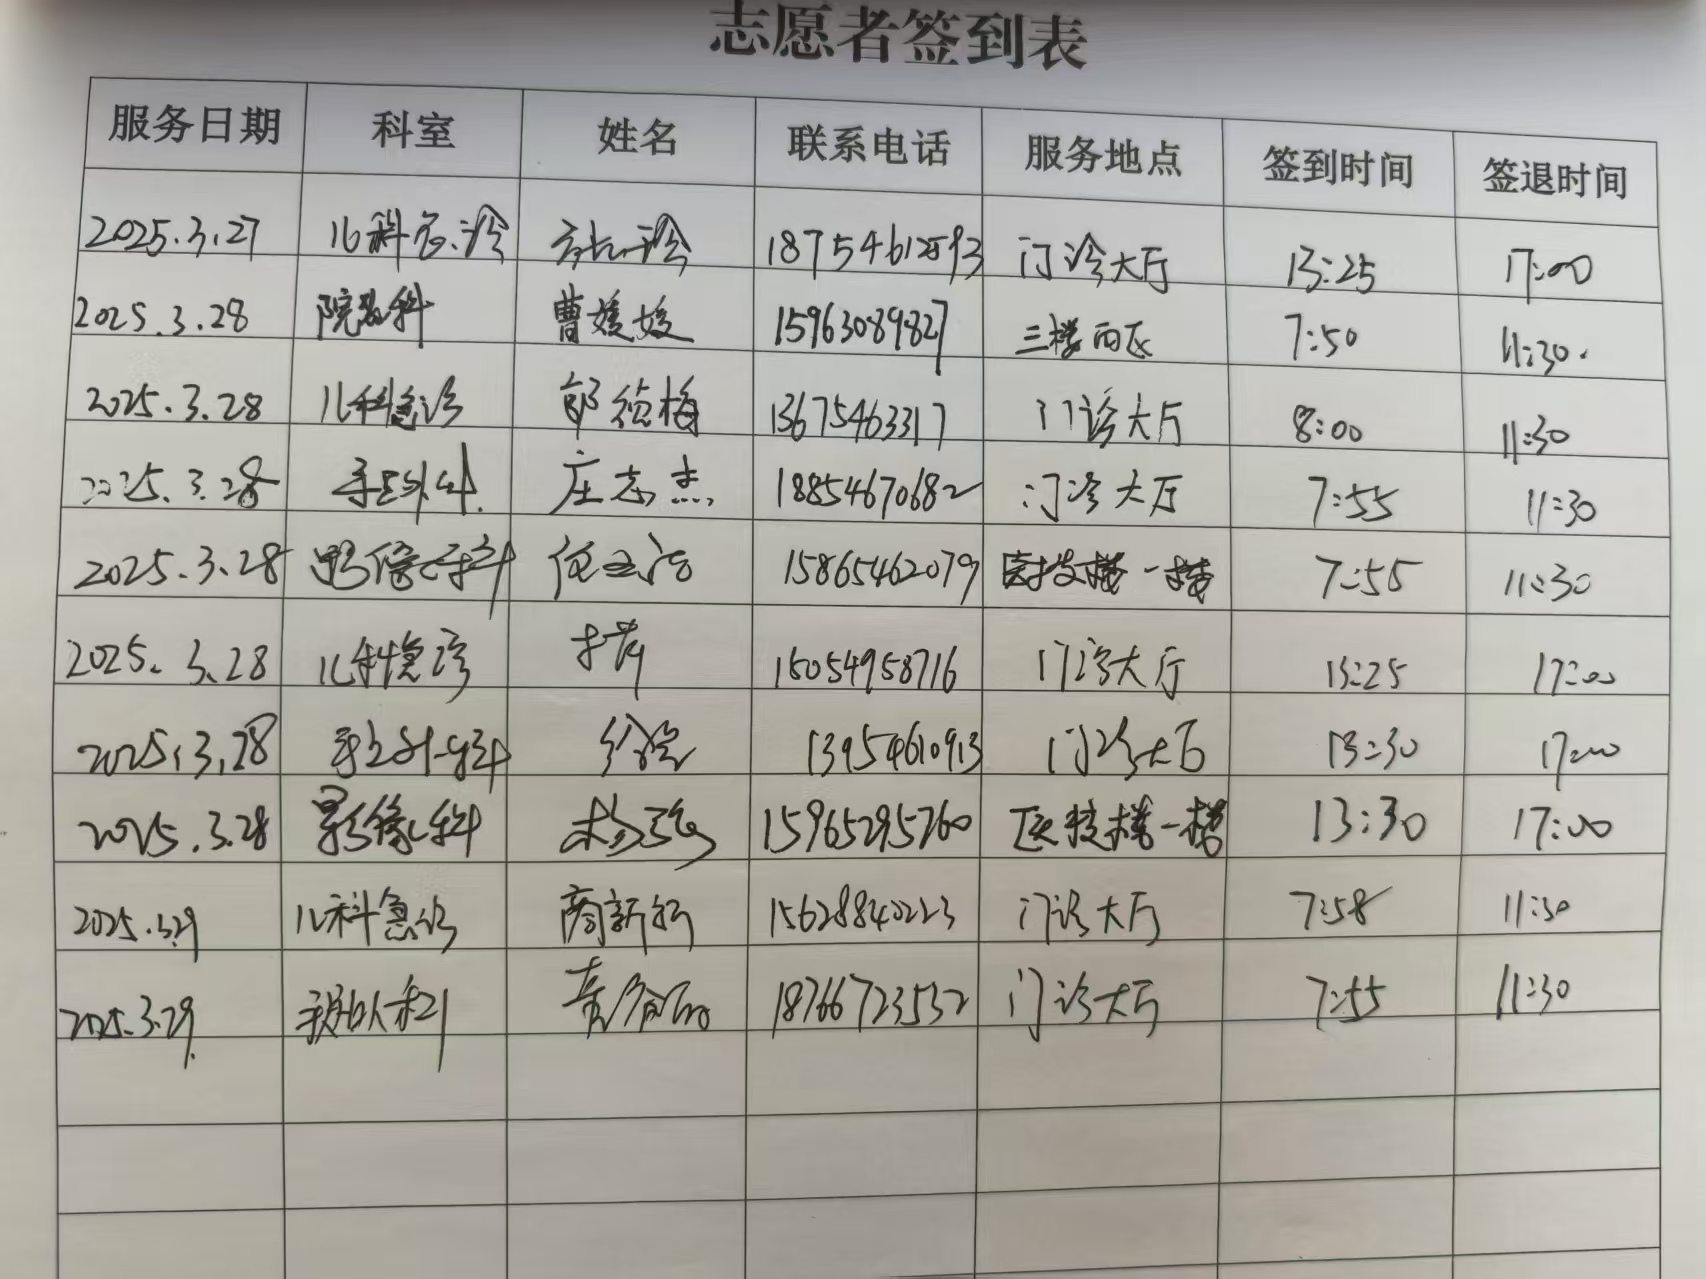 志愿者签到表
服务日期 科室 姓名 联系电话 服务地点 签到时间 签退时间
2025.3.27 儿科急诊 18754612593 门诊大厅 13:25 17:00
2025.3.28 院感科 曹媛媛 15963089827 三楼西区 7:50 11:30.
2025.3.28 儿科急诊 13675463317 门诊大厅 8:00 11:30
2025.3.28 手足外科 庄志杰 18854670682 门诊大厅 7:55 11:30
2025.3.28 影像科 15865462079 医技楼一楼 7:55 11:30
2025.3.28 儿科急诊 15054958716 门诊大厅 13:25 17:00
2025.3.28 手足外科 13954610913 门诊大厅 13:30 17:00
2025.3.28 影像科 15965295760 医技楼一楼 13:30 17:00
2025.3.29 儿科急诊 15628840223 门诊大厅 7:58 11:30
2025.3.29 18766723532 门诊大厅 7:55 11:30